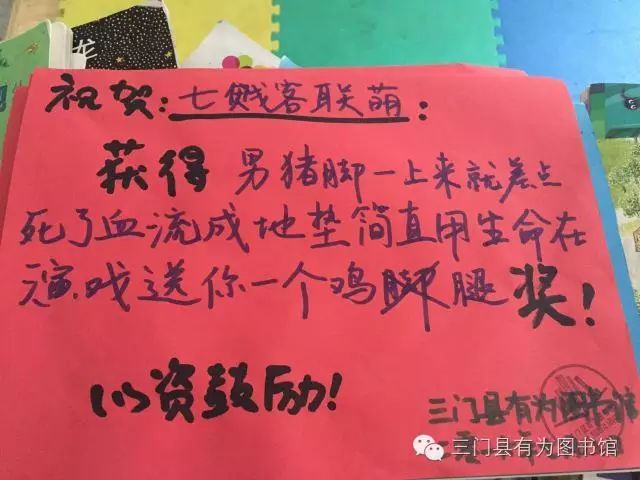 龙
祝贺:七贱客联萌:
获得 男猪脚一上来就差点
死了血流成地垫简直用生命在
演戏送你一个鸡腿奖!
以资鼓励!
三门县有为图书馆
三门县有为图书馆